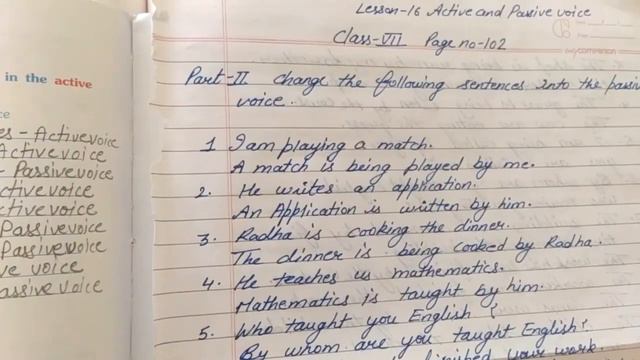 Lesson-16 Active and Passive voice
Class-VII Page no-102
Part-II Change the following sentences into the passive
voice.
1 I am playing a match.
A match is being played by me.
2. He writes an application.
An Application is written by him.
3. Radha is cooking the dinner.
The dinner is being cooked by Radha.
4. He teaches us mathematics.
Mathematics is taught by him.
5. Who taught you English?
By whom are you taught English?
finished your work.
in the active
Active voice
Active voice
Passive voice
Active voice
Active voice
Passive voice
Passive voice
voice
Passive voice